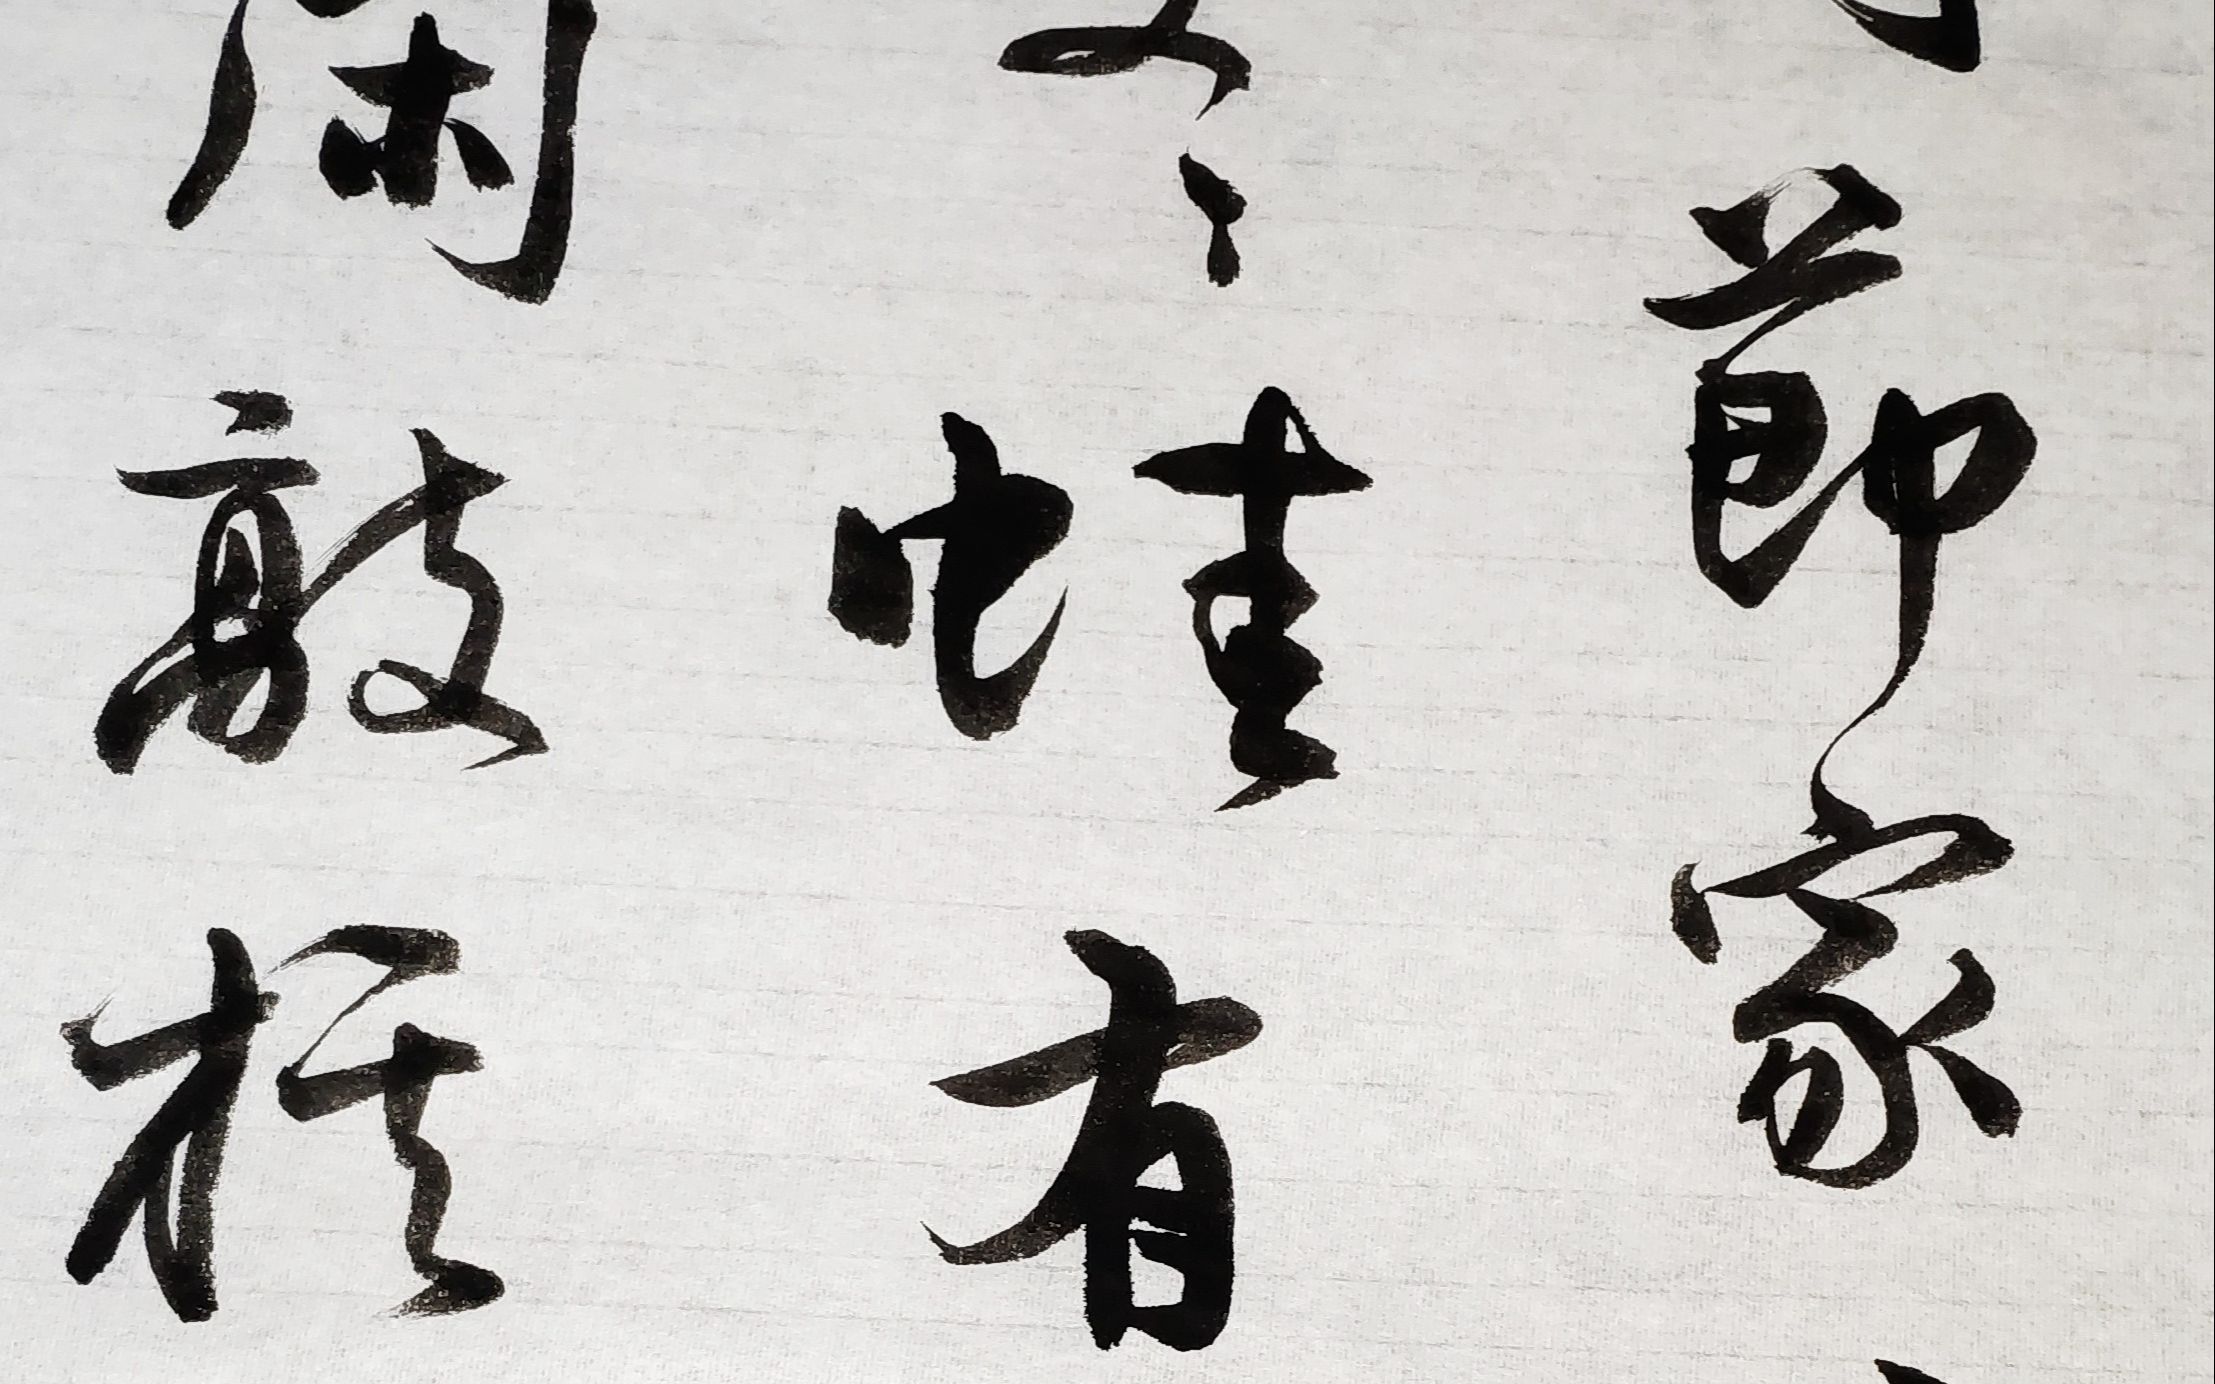 節家
々蛙有
閑敲棋